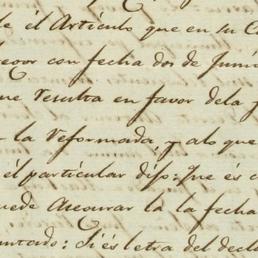 de él Artículo que en su C
esor con fecha dos de Juni
ue resulta en favor dela
la Reformada, y alo que
él particular dijo: Que és c
uede Asegurar la la fecha
untado: Si és letra del decl